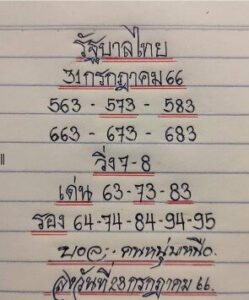 รัฐบาลไทย
31กรกฎาคม66
563 - 573 - 583
663 - 673 - 683
วิ่ง7-8
เด่น 63-73-83
รอง 64-74-84-94-95
บอล:- คนหนุ่มเหนือ.
ส่งวันที่28กรกฎาคม 66.